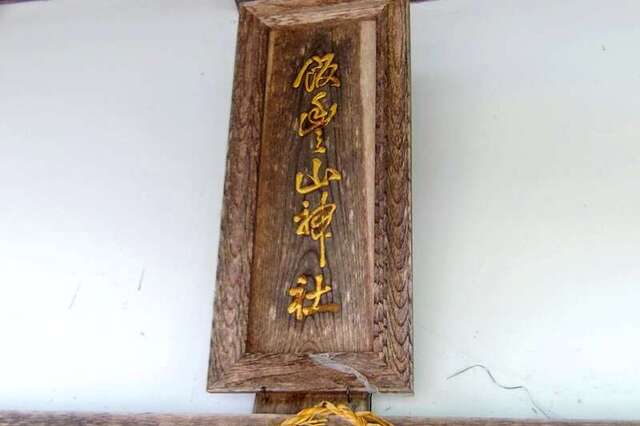 飯豊山神社